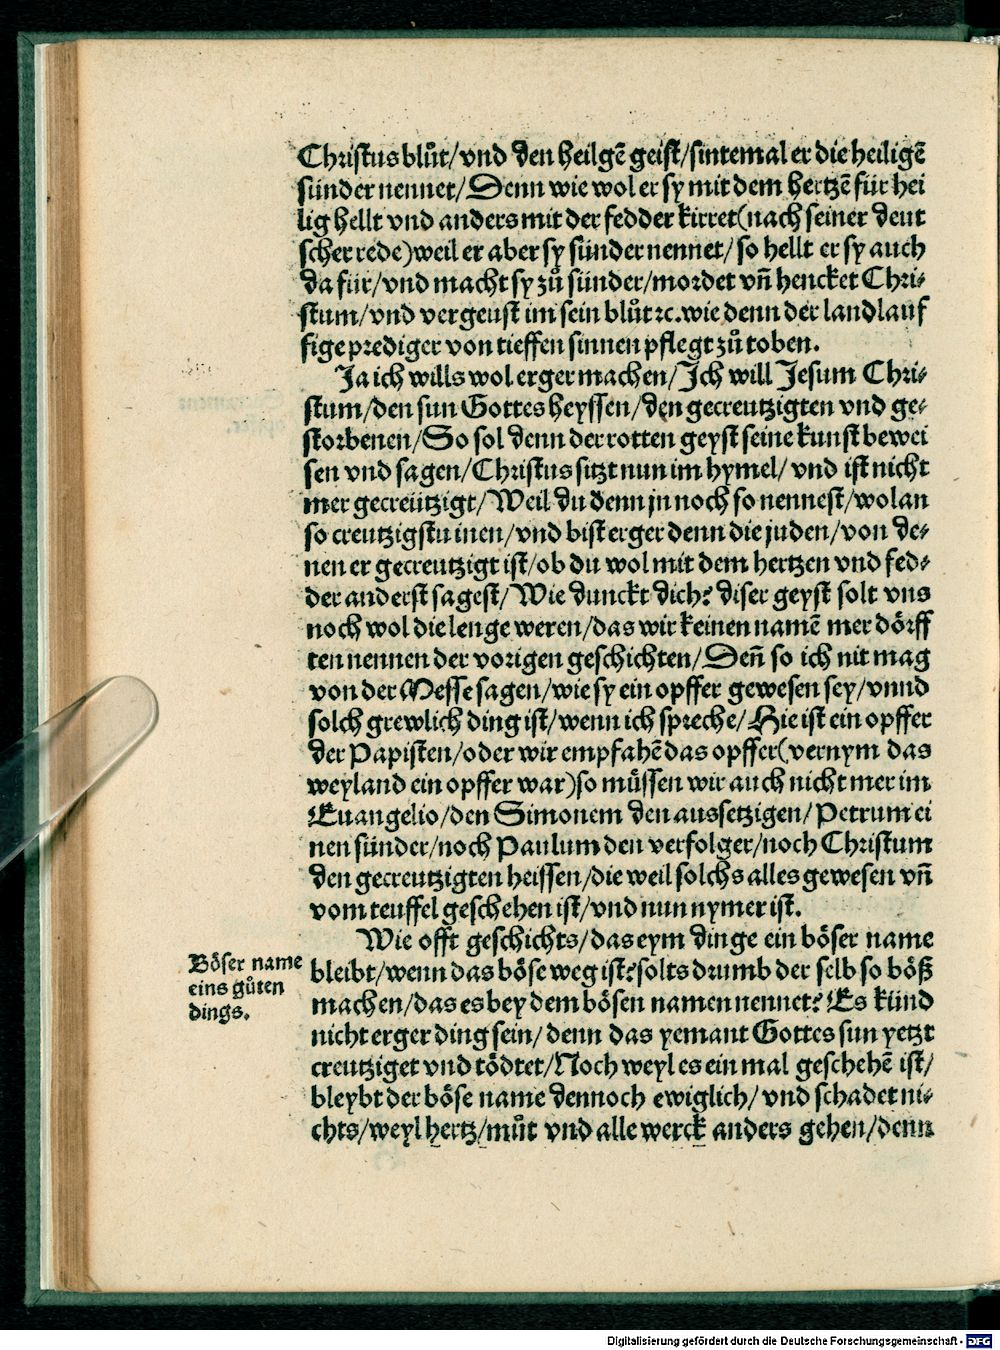 Christus blůt/vnd den heilgē geist/sintemal er die heiligē
sünder nennet/Denn wie wol er sy mit dem hertzē für hei
lig hellt vnd anders mit der fedder kirret(nach seiner deut
scher rede)weil er aber sy sünder nennet/so hellt er sy auch
da für/vnd macht sy zů sünder/mordet vñ hencket Chri-
stum/vnd vergeust im sein blůt ꝛc.wie denn der landlauf
fige prediger von tieffen sinnen pflegt zů toben.
Ja ich wills wol erger machen/Ich will Jesum Chri-
stum/den sun Gottes heyssen/den gecreutzigten vnd ge-
storbenen/So sol denn der rotten geyst seine kunst bewei
sen vnd sagen/Christus sitzt nun im hymel/vnd ist nicht
mer gecreützigt/Weil du denn jn noch so nennest/wolan
so creutzigstu inen/vnd bist erger denn die juden/von de-
nen er gecreutzigt ist/ob du wol mit dem hertzen vnd fed-
der anderst sagest/Wie dunckt dich? diser geyst solt vns
noch wol die lenge weren/das wir keinen namē mer dörff
ten nennen der vorigen geschichten/Deñ so ich nit mag
von der Messe sagen/wie sy ein opffer gewesen sey/vnnd
solch grewlich ding ist/wenn ich spreche/Hie ist ein opffer
der Papisten/oder wir empfahē das opffer(vernym das
weyland ein opffer war)so müssen wir auch nicht mer im
Euangelio/den Simonem den aussetzigen/Petrum ei
nen sünder/noch Paulum den verfolger/noch Christum
den gecreutzigten heissen/die weil solchs alles gewesen vñ
vom teuffel geschehen ist/vnd nun nymer ist.
Wie offt geschichts/das eym dinge ein böser name
bleibt/wenn das böse weg ist?solts drumb der selb so böß
machen/das es bey dem bösen namen nennet? Es künd
nicht erger ding sein/denn das yemant Gottes sun yetzt
creutziget vnd tödtet/Noch weyl es ein mal geschehē ist/
bleybt der böse name dennoch ewiglich/vnd schadet ni-
chts/weyl hertz/můt vnd alle werck anders gehen/denn
Böser name
eins gůten
dings.
Digitalisierung gefördert durch die Deutsche Forschungsgemeinschaft - DFG